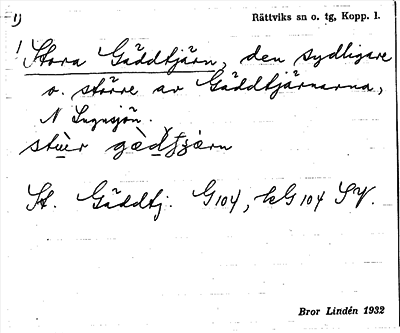 1) Rättviks sn o. tg, Kopp. l.
1 Stora Gäddtjärn, den sydligare
o. större av Gäddtjärnarna,
N Lugnsjön.
stu̲èr gèd̲tjärn
St. Gäddtj. G104, kG104 SV.
Bror Lindén 1932